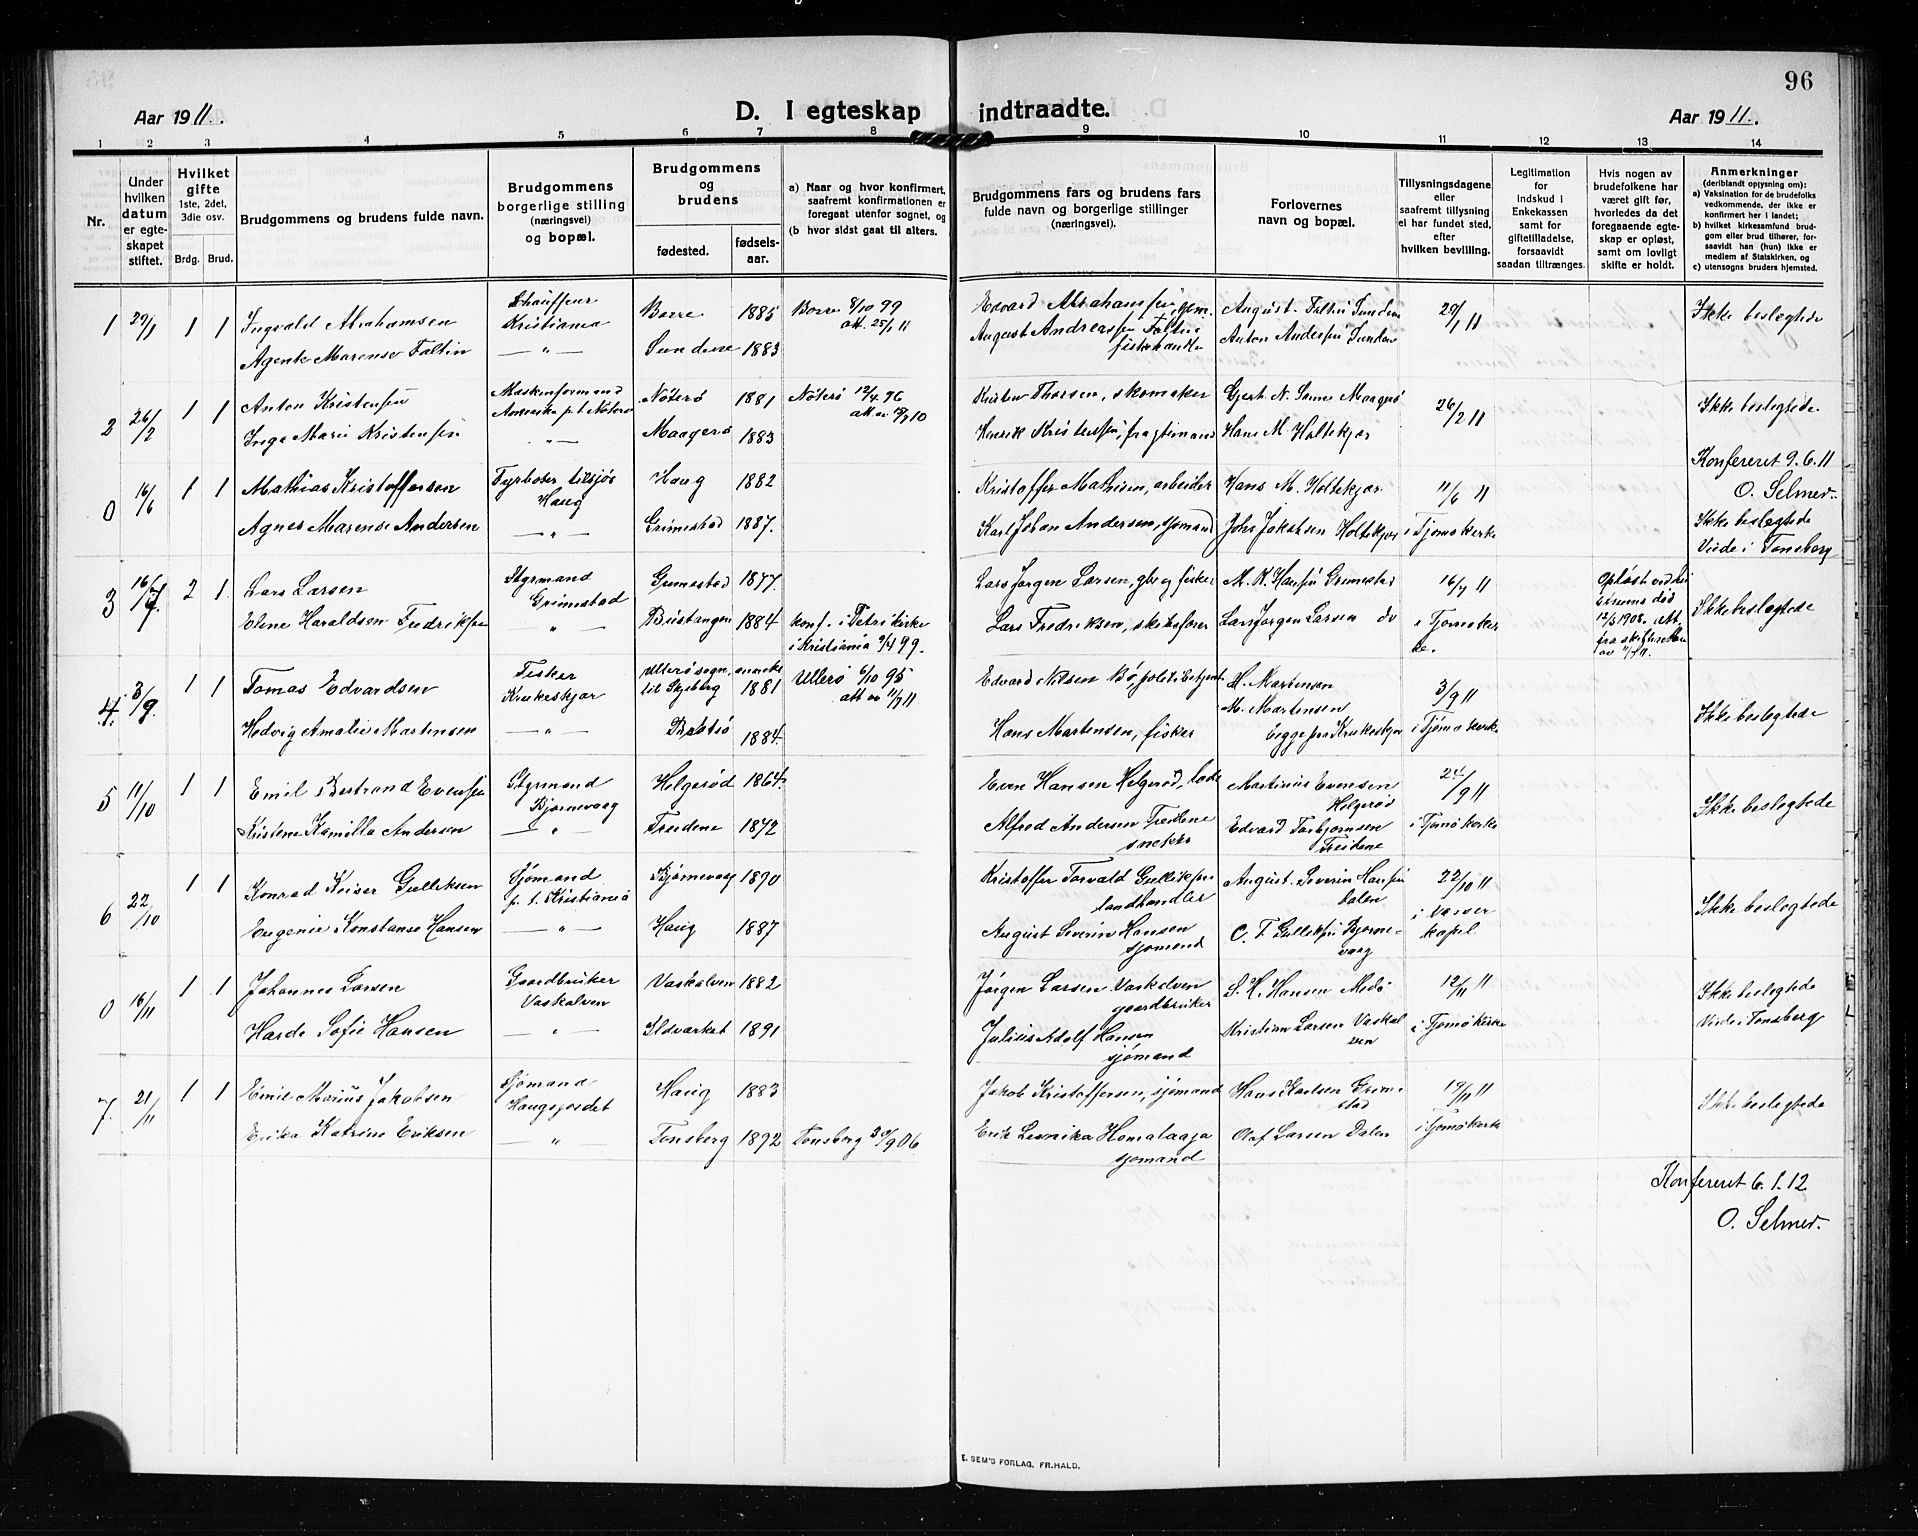 96
Aar 1911.
D. I egteskap indtraadte.
Aar 1911.
1 2 3 4 5 6 7 8 9 10 11 12 13 14
Nr.
Under hvilken datum er egteskapet stiftet.
Hvilket gifte 1ste, 2det, 3die osv.
Brdg. Brud.
Brudgommens og brudens fulde navn.
Brudgommens borgerlige stilling (næringsvei) og bopæl.
Brudgommens og brudens
fødested. fødselsaar.
a) Naar og hvor konfirmert, saafremt konfirmationen er foregaat utenfor sognet, og
(b hvor sidst gaat til alters.
Brudgommens fars og brudens fars fulde navn og borgerlige stillinger (næringsvei).
Forlovernes navn og bopæl.
Tillysningsdagene eller saafremt tillysning ei har fundet sted, efter hvilken bevilling.
Legitimation for Indskud i Enkekassen samt for giftetilladelse, forsaavidt saadan tiltrænges.
Hvis nogen av brudefolkene har været gift før, hvorledes da det foregaaende egteskap er opløst, samt om lovligt skifte er holdt.
Anmerkninger (deriblandt opjysning om):
a) Vaksination for de brudefolks vedkommende, der ikke er konfirmert her i landet;
b) hvilket kirkesamfund brudgom eller brud tilhører, forsaavidt han (hun) ikke er medlem af Statskirken, og
c) utensogns bruders hjemsted.
1 29/1 1 1 Ingvald Abrahamsen Chauffeur Kristiania Borre 1885 Borre 8/10 99 att. 25/1 11 Edvard Abrahamsen August Faltin Sundene 29/1 11 Ikke beslegtede
Agente Marense Faltin — " — Sundene 1883 August Andreassen Faltin fiskehandler Anton Andersen Sundene
2 26/2 1 1 Anton Kristensen Amerika p.t. Nøterø Nøterø 1881 Nøterø 12/4 96 Kristen Thorsen, skomaker Gjert N. Sonne Maagerø 26/2 11 Ikke beslegtede
Inga Marie Kristensen — " — Maagerø 1883 Henrik Kristensen, fragtemand Hans M. Holtekjær
Konfereret 9.6.11
O. Selmer.
0 16/6 1 1 Mathias Kristoffersen Fyrbøter tilsjøs Haug Haug 1882 Kristoffer Mathisen, arbeider Hans M. Holtekjær 11/6 11 Ikke beslegtede
Agnes Marense Andersen — " — Grimestad 1887. Karl Johan Andersen, sjømand Johs Jakobsen Holtekjær i Tjømø kirke Viede i Tønsberg
3 16/7 2 1 Lars Larsen Styrmand Grimestad Grimestad 1877. Lars Jørgen Larsen, gbr og fisker M. K. Hansen Grimestad 16/7 11 Opløst ved 12/3 1908. Att. fra skifteretten Ikke beslegtede
Elene Haraldsen Fredriksen — " — Bustangen 1884 konf. i Petri kirke i Kristiania 9/4 99. Lars Fredriksen, skibsfører Lars Jørgen Larsen do i Tjømø kirke.
4. 3/9 1 1 Tomas Edvardsen Fisker Krukeskjær Ullerø sogn, anneks til Skjeberg 1881 Ullerø 6/10 95 Edvard Nilsen Bø, politibetjent H. Martensen 3/9 11 Ikke beslegtede
Hedvig Amalie Martensen — " — 1884. Hans Martensen, fisker M. Martensen begge paa Krukeskjær i Tjømø kirke
5 11/10 1 1 Emil Bertrand Evensen Styrmand Bjørnevaag Helgerød 1864. Even Hansen Helgerød, lods Martinius Evensen Helgerød 24/9 11 Ikke beslegtede
Kristine Kamilla Andersen — " — Treidene 1872 Alfred Andersen Treidene snekker Edvard Torbjørnsen Treidene i Tjømø kirke
6 22/10 1 1 Konrad Keiser Gulliksen Sjømand p. t. Kristiania Bjørnevaag 1890 Kristoffer Torvald Gulliksen landhandler August Severin Hansen Dalen 22/10 11 Ikke beslegtede
Eugenie Konstanse Hansen — " — Haug 1887 August Severin Hansen sjømand C. T. Gulliksen Bjørnevaag i Vasser kapel
0 16/11 1 1 Johannes Larsen Gaardbruker Vaskalven Vaskalven 1882 Jørgen Larsen Vaskalven gaardbruker S. H. Hansen Medø 12/11 11 Ikke beslegtede
Harda Sofie Hansen — " — Ildverket 1891 Julius Adolf Hansen sjømand Kristian Larsen Vaskalven i Tjømø kirke Viede i Tønsberg
7 21/11 1 1 Emil Marius Jakobsen Sjømand Haugsjordet Haug 1883 Jakob Kristoffersen, sjømand Hans Karlsen Grimestad 19/11 11 Ikke beslegtede
Erika Katrine Eriksen — " — Tønsberg 1892 Tønsberg 30/9 06. Erik Leonika Homalaaja sjømand Olaf Larsen Dalen i Tjømø kirke
Konfereret 6.1.12
O. Selmer.
E. SEM'S FORLAG, FR.HALD.